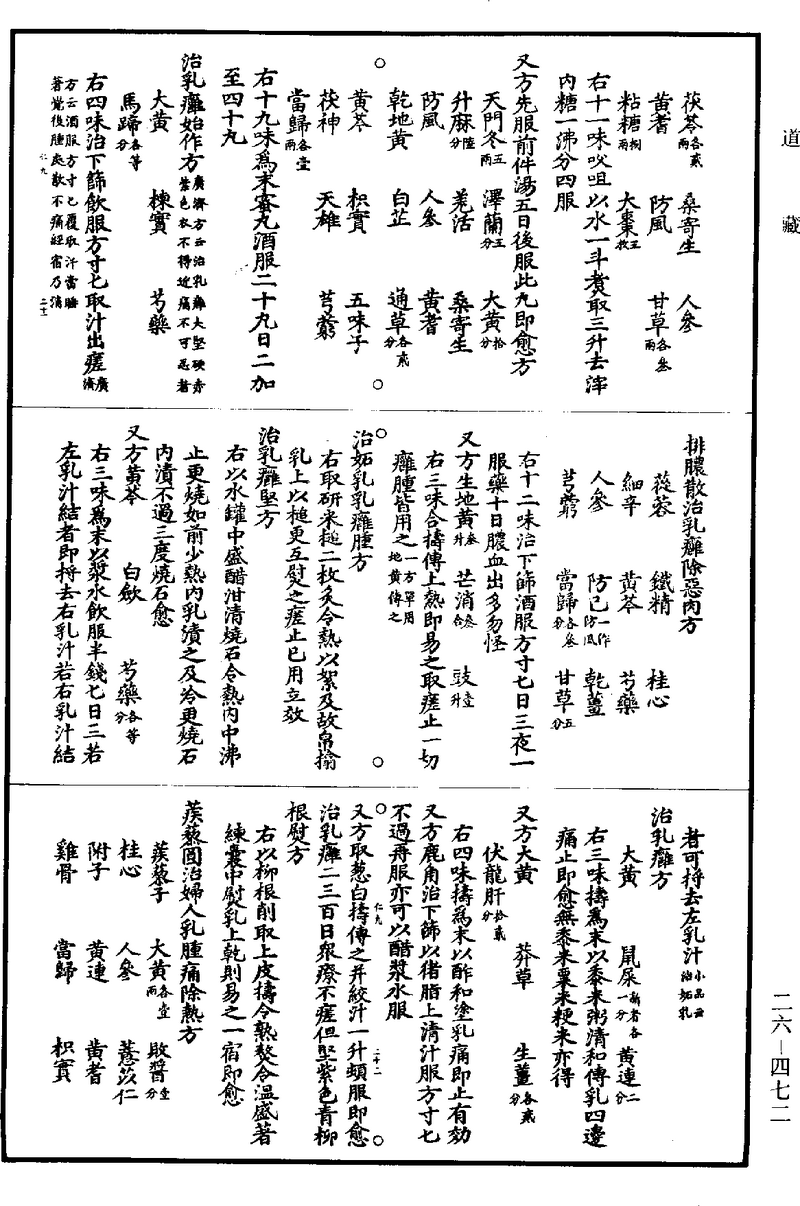 道藏
茯苓各貳兩　桑寄生　人參
黃耆　防風　甘草各叁兩
粘糖捌兩　大棗五枚
右十一味㕮咀以水一斗煮取三升去滓
內糖一沸分四服
又方先服前件湯五日後服此丸即愈方
天門冬五兩　澤蘭五分　大黃拾分
升麻陸分　羌活　桑寄生
防風　人參　黃耆
乾地黃　白芷　通草各貳分
黃芩　枳實　五味子
茯神　天雄　芎藭
當歸各壹兩
右十九味為末蜜丸酒服二十九日二加
至四十丸
治乳癰始作方廣濟方云治乳癰大堅硬赤紫色衣不得近痛不可忍者
大黃　楝實　芍藥
馬蹄各等分
右四味治下篩飲服方寸匕取汁出瘥廣濟
方云酒服方寸匕覆取汗當睡
著覺後腫處散不痛經宿乃消
仁九　二十一
排膿散治乳癰除惡肉方
蓯蓉　鐵精　桂心
細辛　黃芩　芍藥
人參　防己一作防風　乾薑
芎藭　當歸各叁分　甘草五分
右十二味治下篩酒服方寸匕日三夜一
服藥十日膿血出多勿怪
又方生地黃叁升　芒消叁合　豉壹升
右三味合擣傳上熱即易之取瘥止一切
癰腫皆用之一方單用地黃傳之
治妬乳乳癰腫方
右取研米槌二枚炙令熱以絮及故帛搶
乳上以槌更互熨之瘥止已用立效
治乳癰堅方
右以水罐中盛醋泔清燒石令熱內中沸
止更燒如前少熱內乳漬之及冷更燒石
內漬不過三度燒石愈
又方黃芩　白斂　芍藥各等分
右三味為末以漿水飲服半錢匕日三若
左乳汁結者即捋去右乳汁若右乳汁結
者可捋去左乳汁小品云治妬乳
治乳癰方
大黃　鼠屎新者各一分　黃連二分
右三味擣為末以黍米粥清和傳乳四邊
痛止即愈無黍米粟米粳米亦得
又方大黃　莽草　生薑各貳分
伏龍肝拾貳分
右四味擣為末以酢和塗乳痛即止有効
又方鹿角治下篩以猪脂上清汁服方寸匕
不過再服亦可以醋漿水服
仁九　二十二
又方取葱白擣傳之并絞汁一升頓服即愈
治乳癰二三百日衆療不瘥但堅紫色青柳
根熨方
右以柳根削取上皮擣令熟熬令溫盛著
練囊中熨乳上乾則易之一宿即愈
蒺藜圓治婦人乳腫痛除熱方
蒺藜子　大黃各壹兩　敗醬壹分
桂心　人參　薏苡仁
附子　黃連　黃耆
雞骨　當歸　枳實
二六—四七二